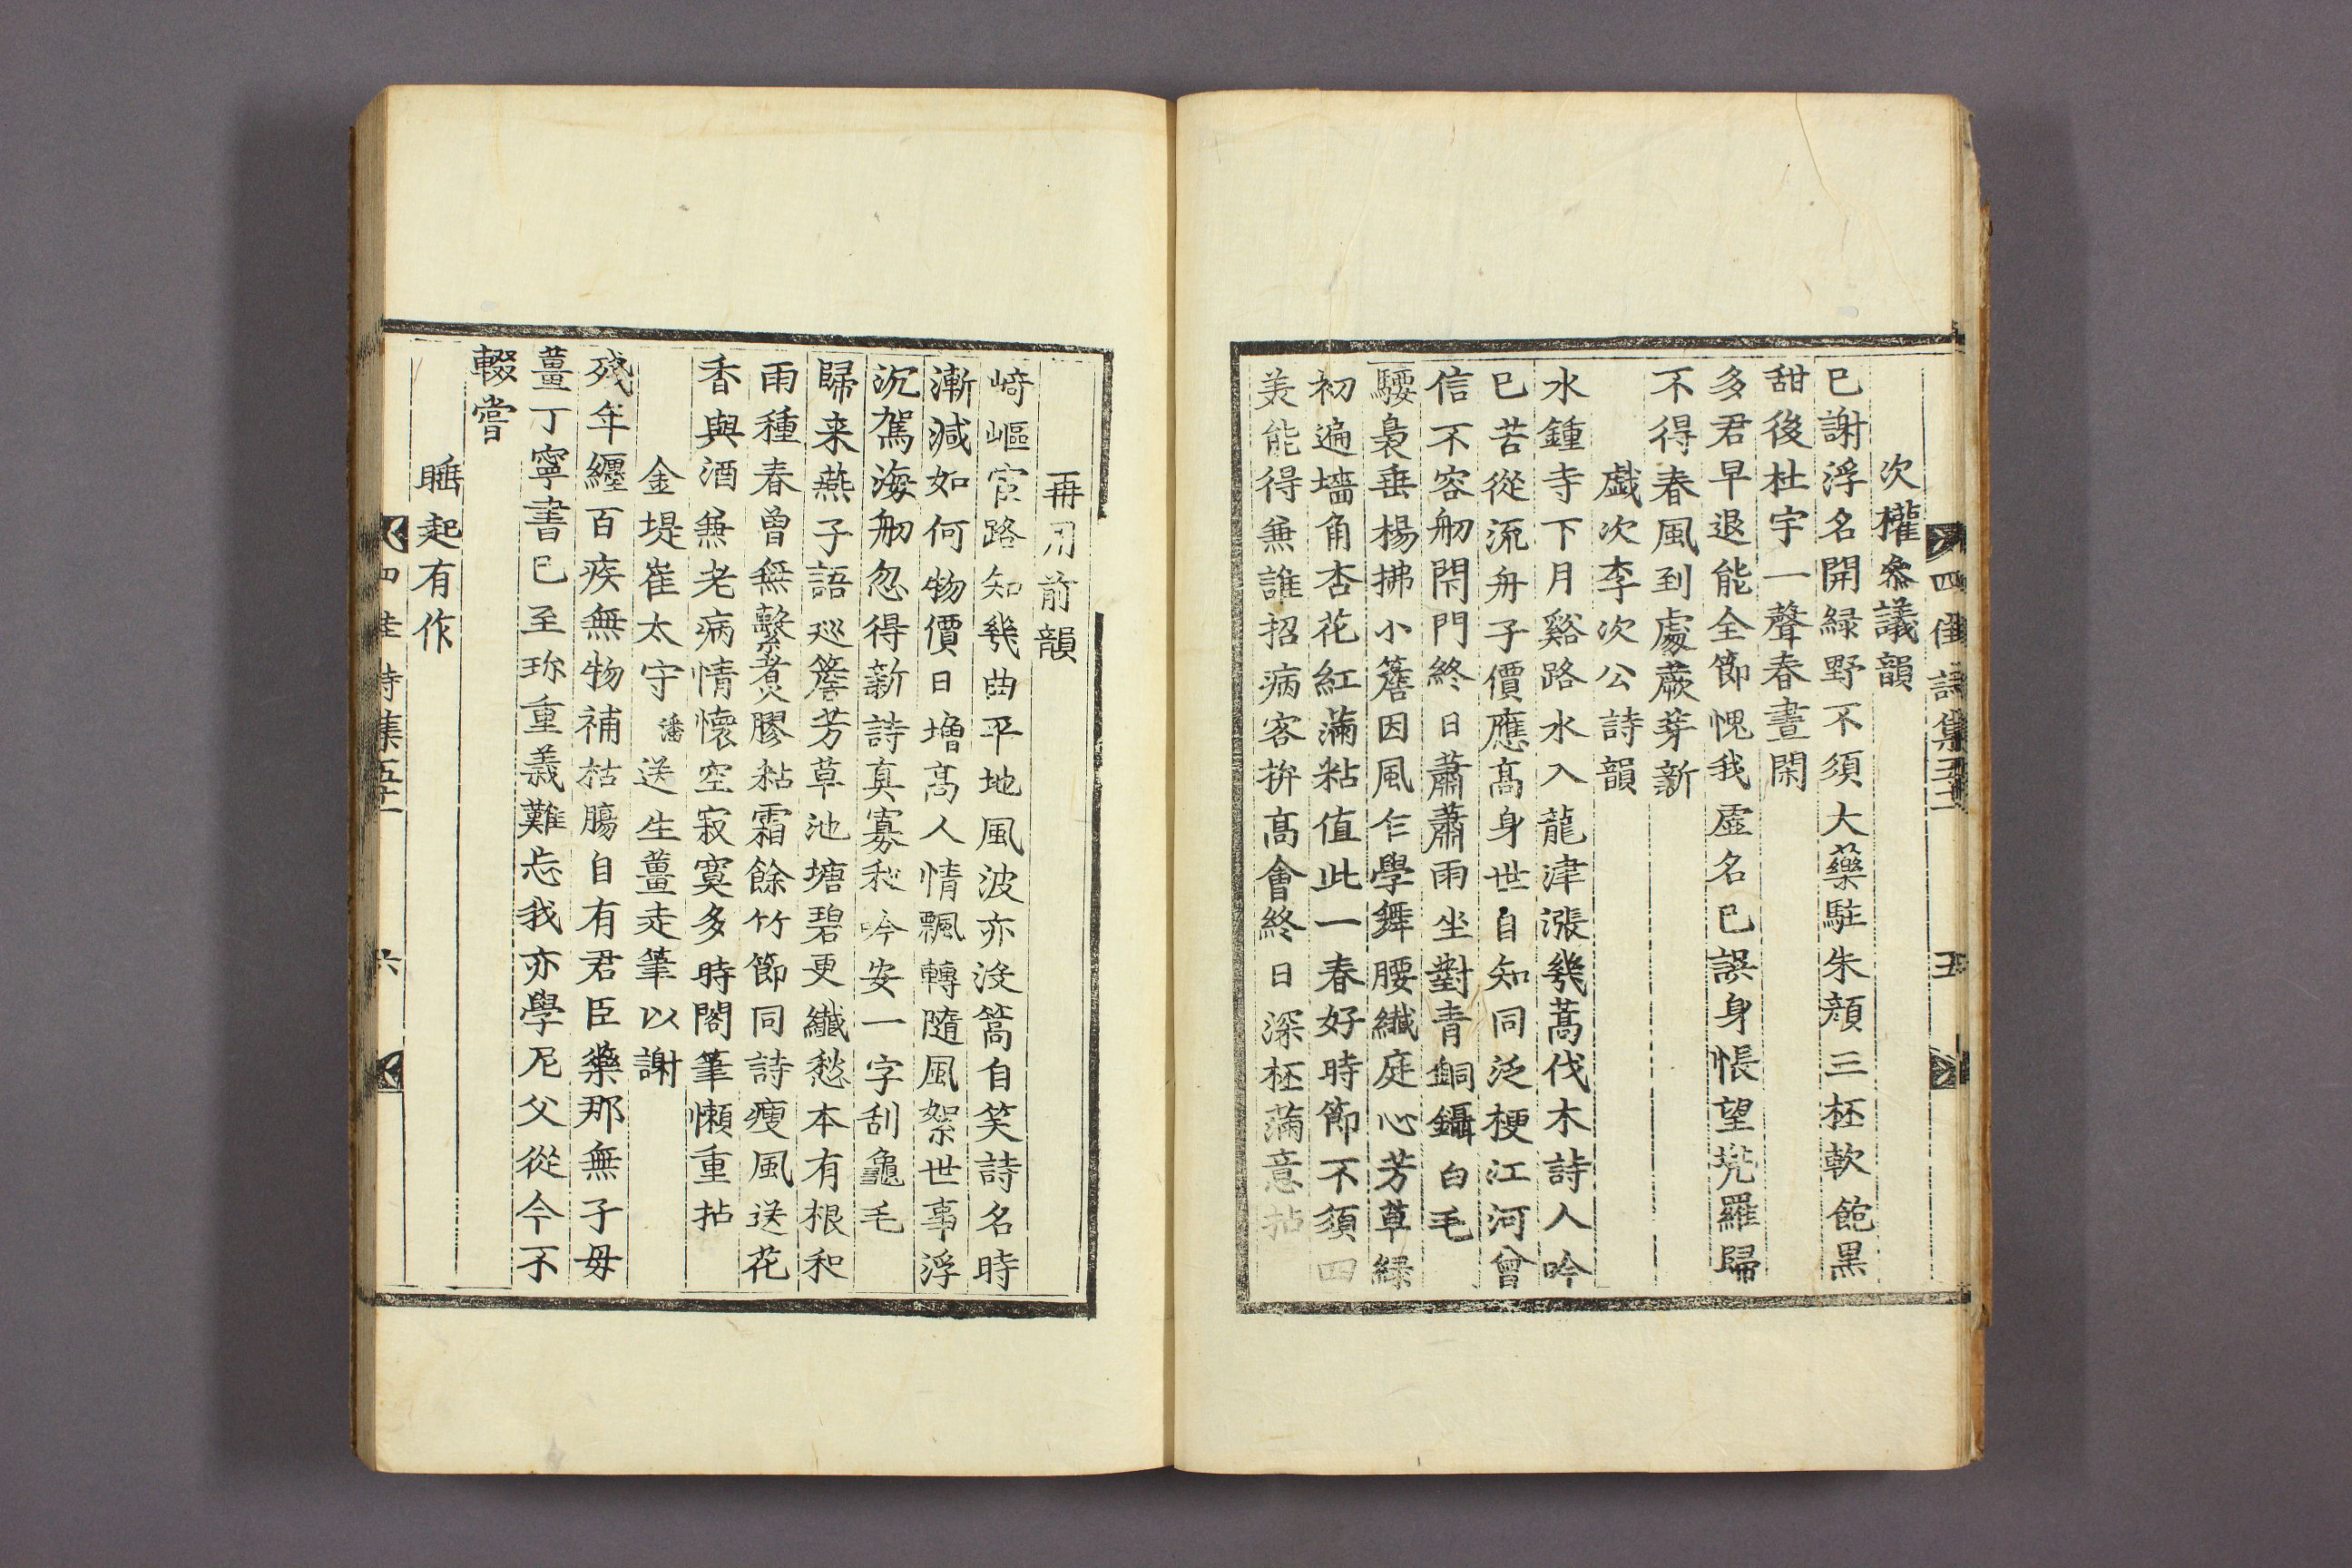 四佳詩集五十二
五
次權叅議韻
已謝浮名開緑野不須大藥駐朱顔三杯軟飽黑
甜後杜宇一聲春晝閑
多君早退能全節愧我虚名已誤身悵望兠羅歸
不得春風到處蕨芽新
戯次李次公詩韻
水鍾寺下月谿路水入龍津漲幾蒿伐木詩人吟
已苦從流舟子價應髙身世自知同泛梗江河曾
信不容舠閇門終日蕭蕭雨坐對青銅鑷白毛
騕褭垂楊拂小簷因風乍學舞腰纎庭心芳草緑
初遍墻角杏花紅滿粘值此一春好時節不須四
美能得兼誰招病客拚髙會終日深杯滿意拈
再用前韻
﨑嶇宦路知幾曲平地風波亦没篙自笑詩名時
漸减如何物價日増髙人情飄轉隨風絮世事浮
沉駕海舠忽得新詩真寡和吟安一字刮龜毛
歸来燕子語巡簷芳草池塘碧更纎愁本有根和
雨種春曾無繫煮膠粘霜餘竹節同詩瘦風送花
香與酒兼老病情懷空寂寞多時閣筆懶重拈
金堤崔太守潘送生薑走筆以謝
殘年纒百疾無物補枯膓自有君臣藥那無子母
薑丁寧書已至珎重義難忘我亦學尼父從今不
輟嘗
睡起有作
四佳詩集五十二
六